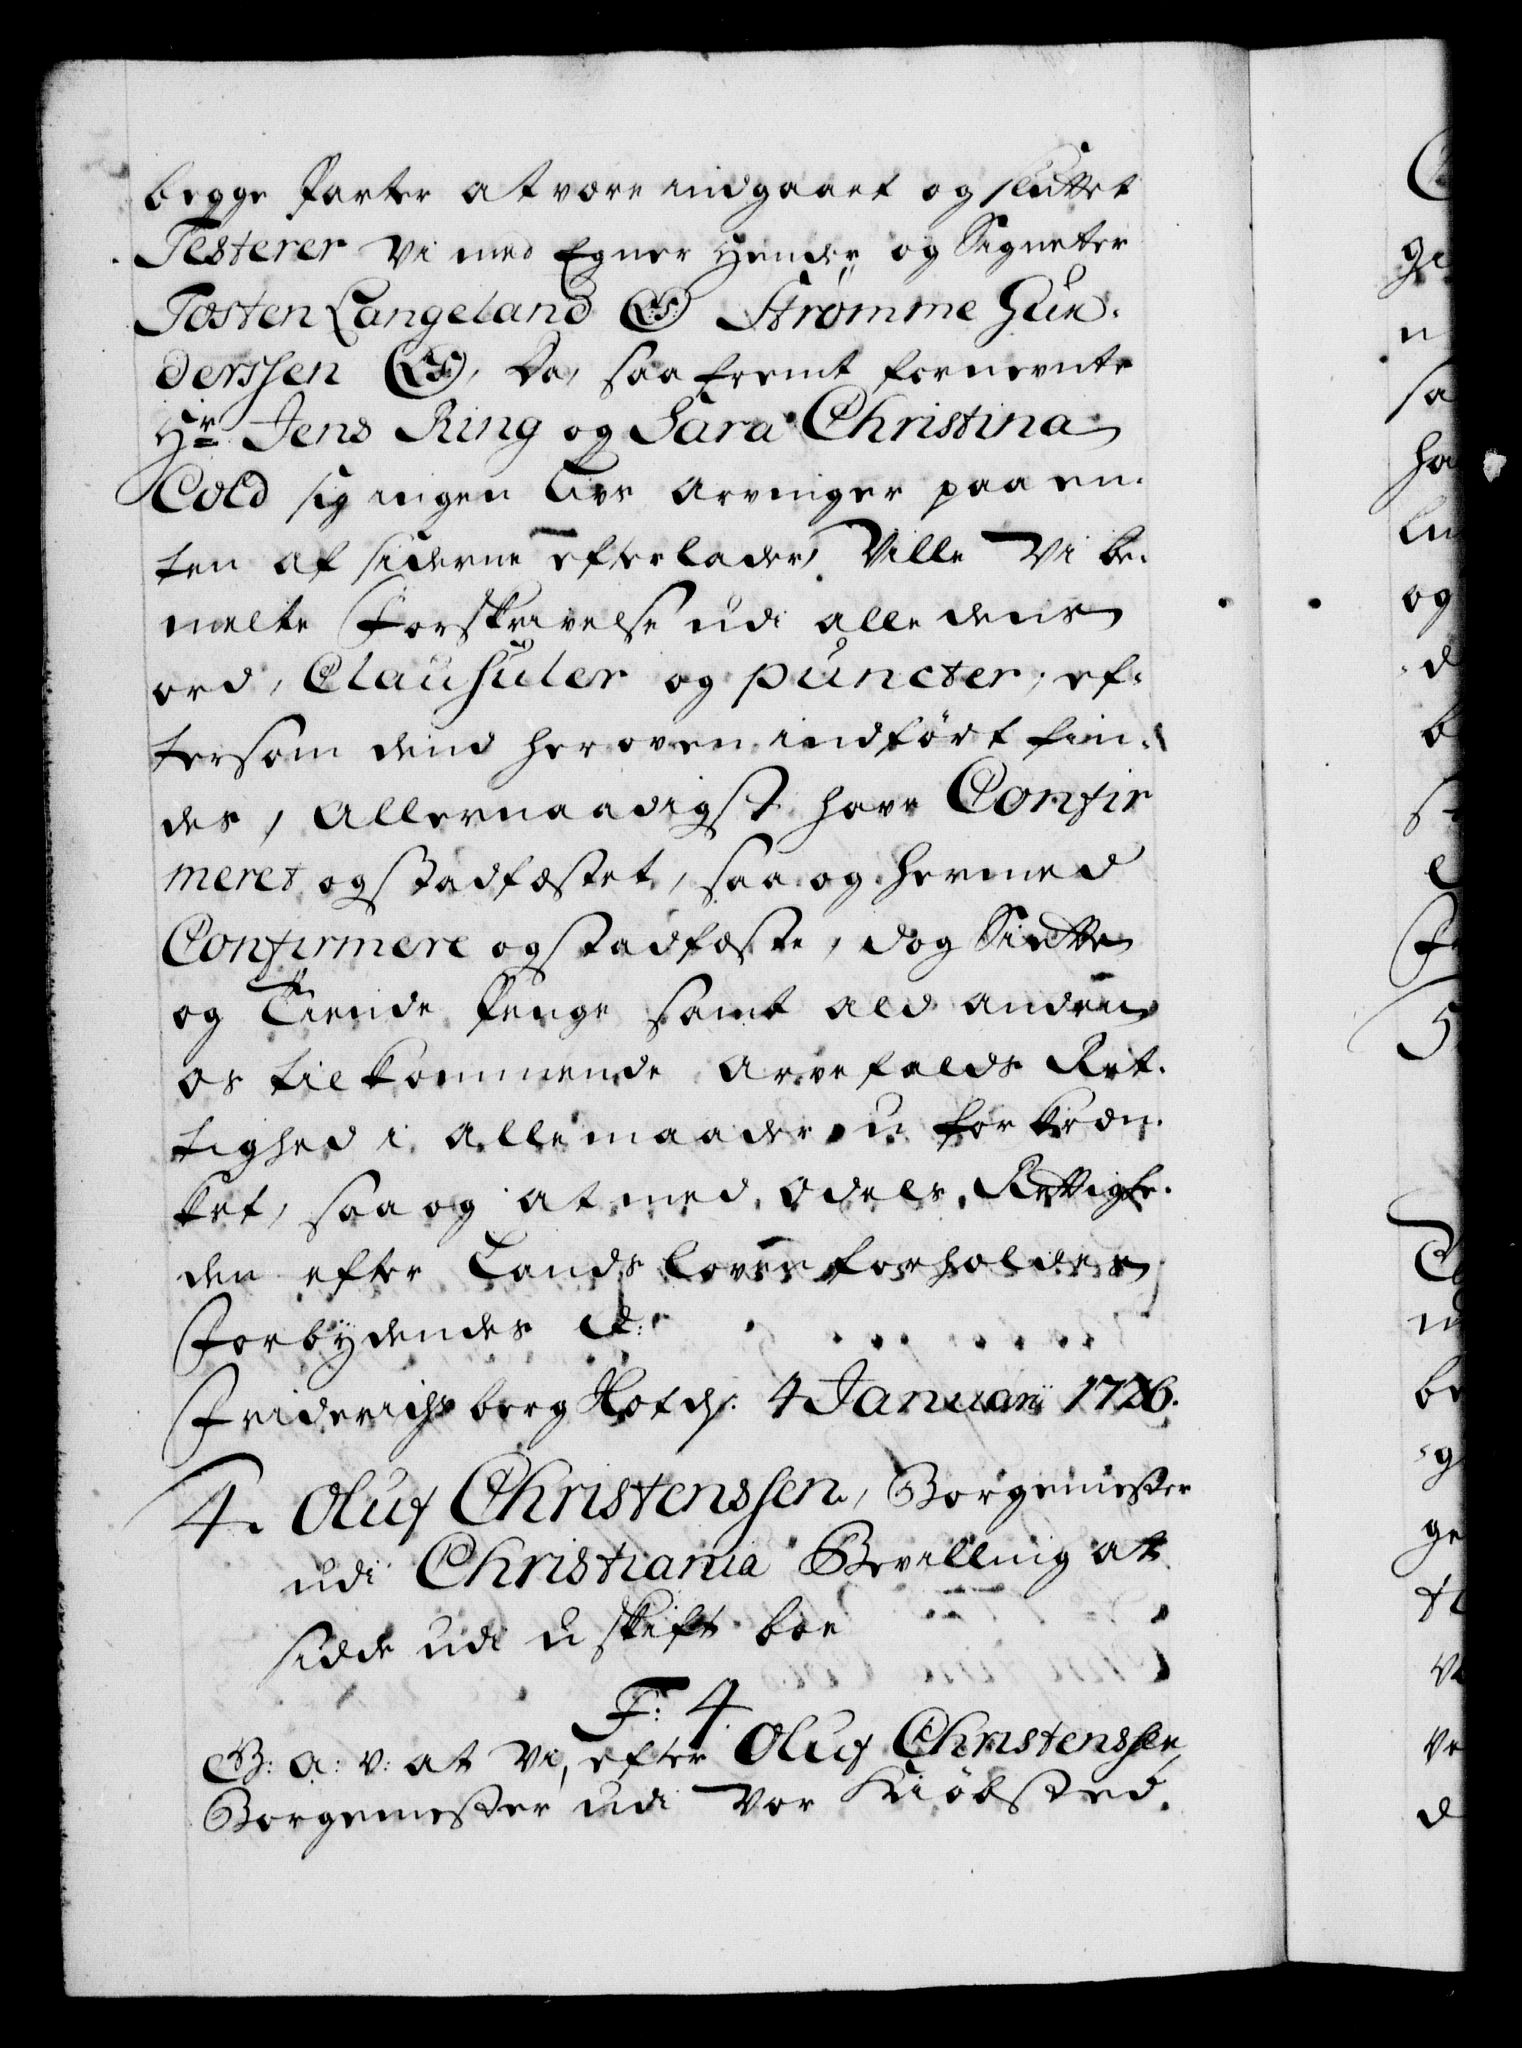 begge Parter at være indgaaet og sluttet
Testerer Vi med Egner Hender og Signeter
Tosten Langeland (LS) Strømme Gun-
derssen (LS), Da, saafremt fornevnte
Hr. Jens Ring og Sara Christina
Cold sig ingen Livs Arvinger paa en-
ten af siderne efterlader, Ville Vi be-
melte Forskrivelse udi alle dens
ord, Clausuler og puncter, ef-
tersom dend her oven indført fin-
des, Allernaadigst have Confir
meret og stadfæstet, saa og hermed
Confirmere og stadfæste, dog Siette
og Tiende Penge samt ald anden
os tilkommende Arvefalds Ret-
tighed i Allemaader u-forkræn-
ket, saa og at med Odels Rettighe-
den efter Lands Loven forholdes,
Forbydendes &:
Friderichsberg Slot d: 4 Januarii 1726.
4. Oluf Christenssen, Borgemester
udi Christiania Bevilling at
sidde udi u-skift boe
F: 4.
G: A: V: at Vi, efter Oluf Christenssen,
Borgemester udi Vor Kiøbsted